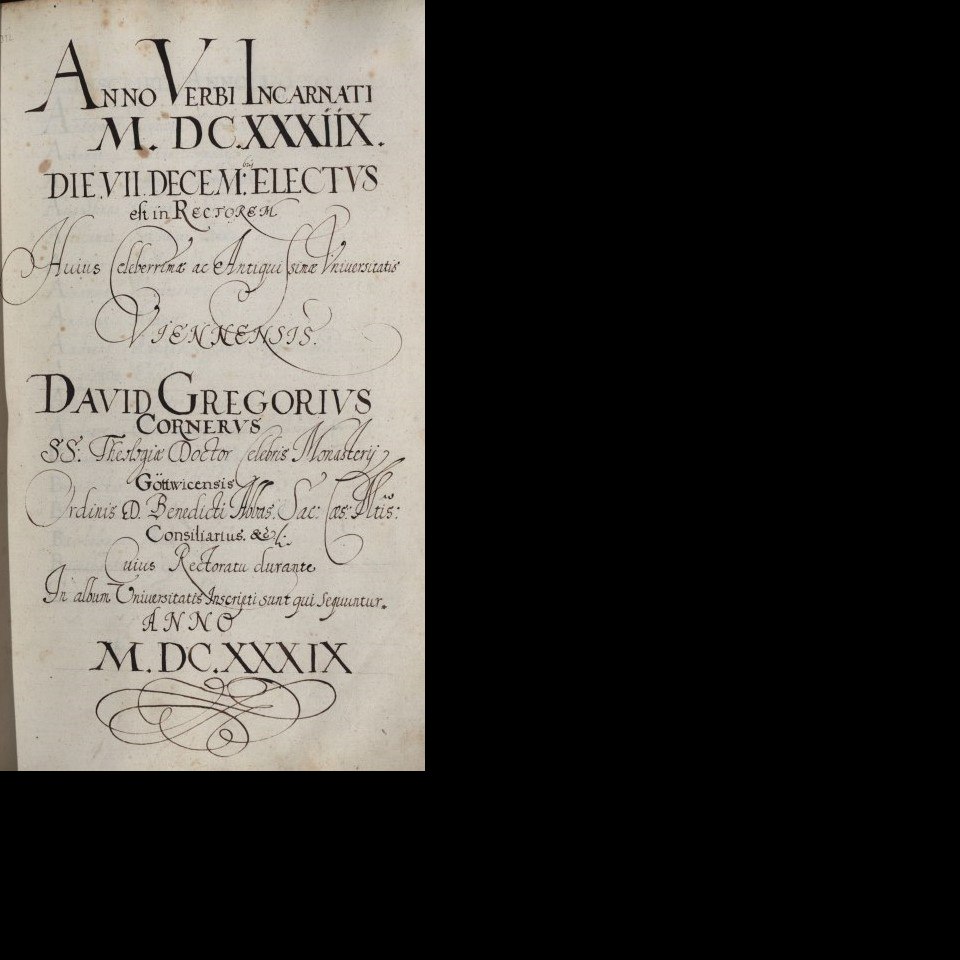 ANNO VERBI INCARNATI
M. DC.XXXIIX.
DIE. VII. DECEM: bris ELECTVS
est in RECTOREM
Huius Celeberrimæ ac Antiquissimæ Vniuersitatis
VIENNENSIS.
DAVID GREGORIVS
CORNERVS
SS. Theologiæ Doctor Celebris Monasterij
Göttwicensis
Ordinis D. Benedicti Abbas. Sac: Cæs: Mtis:
Consiliarius. &c
Cuius Rectoratu durante
In album Vniuersitatis Inscripti sunt qui sequuntur.
ANNO
M. DC.XXXIX